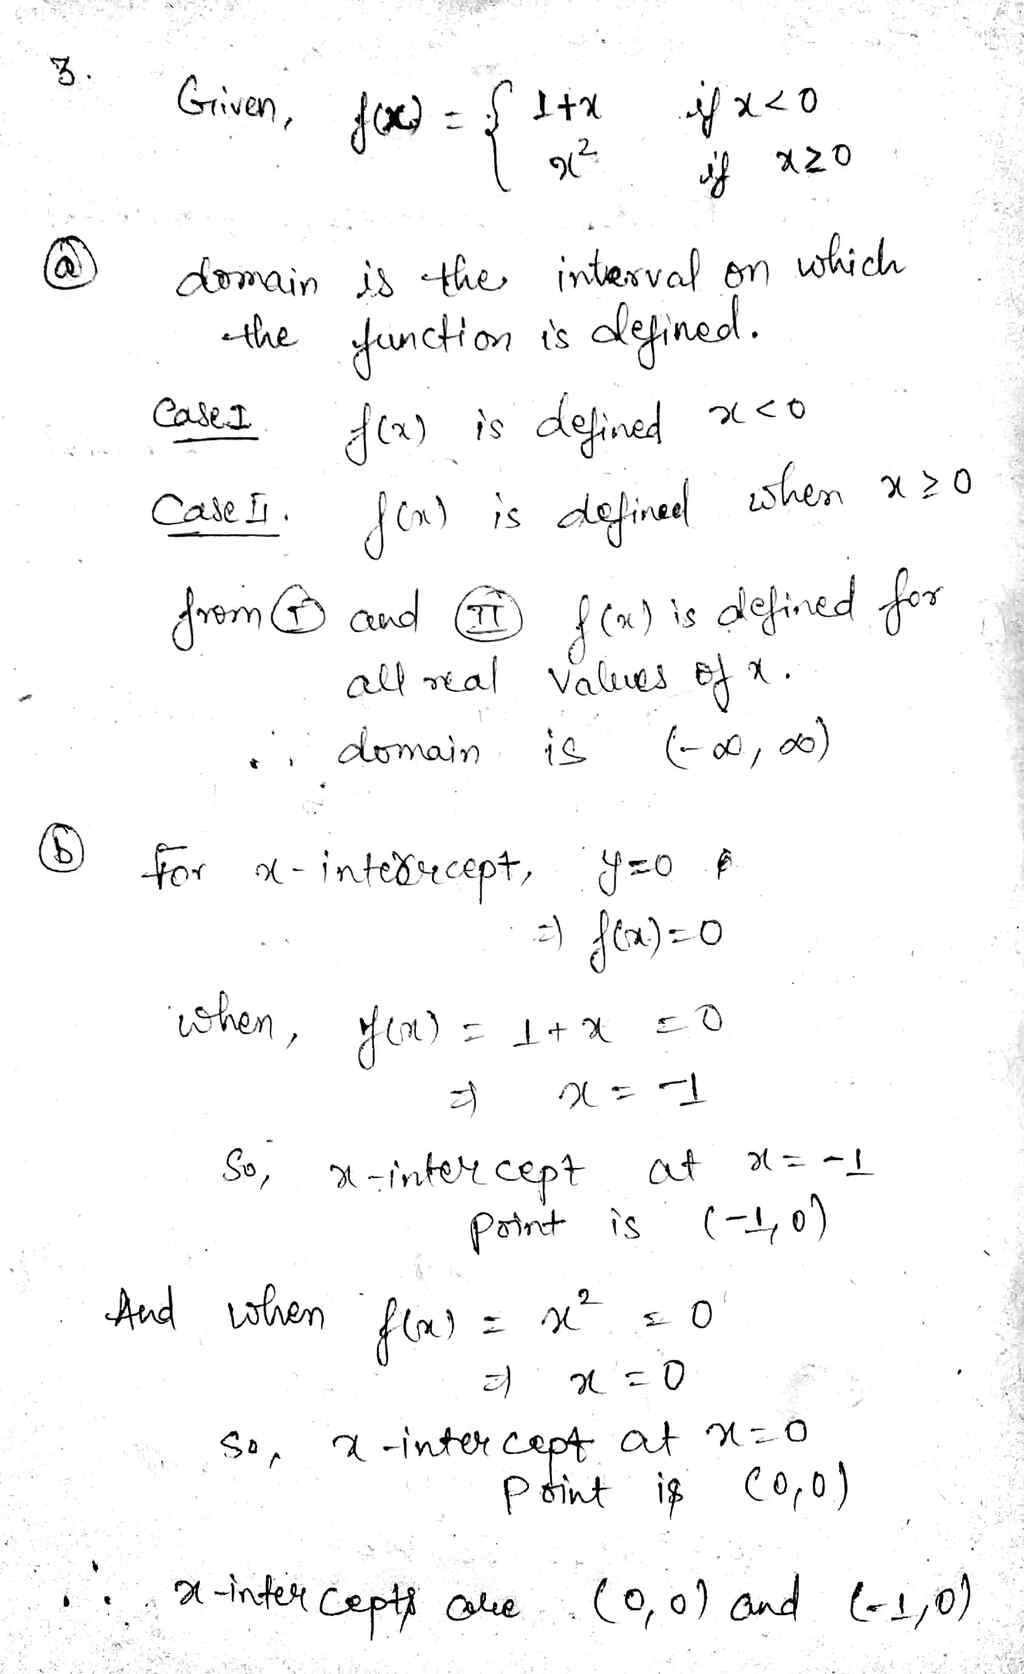 3.
Given, f(x) = { 1+x if x<0
x² if x≥0
(a) domain is the interval on which
the function is defined.
Case I f(x) is defined x<0
Case II. f(x) is defined when x≥0
from (I) and (II) f(x) is defined for
all real values of x.
∴ domain is (-∞, ∞)
(b) For x-intercept, y=0
⇒ f(x)=0
when, f(x) = 1+x = 0
⇒ x = -1
So, x-intercept at x = -1
point is (-1,0)
And when f(x) = x² = 0
⇒ x = 0
So, x-intercept at x=0
Point is (0,0)
∴ x-intercepts are (0,0) and (-1,0)